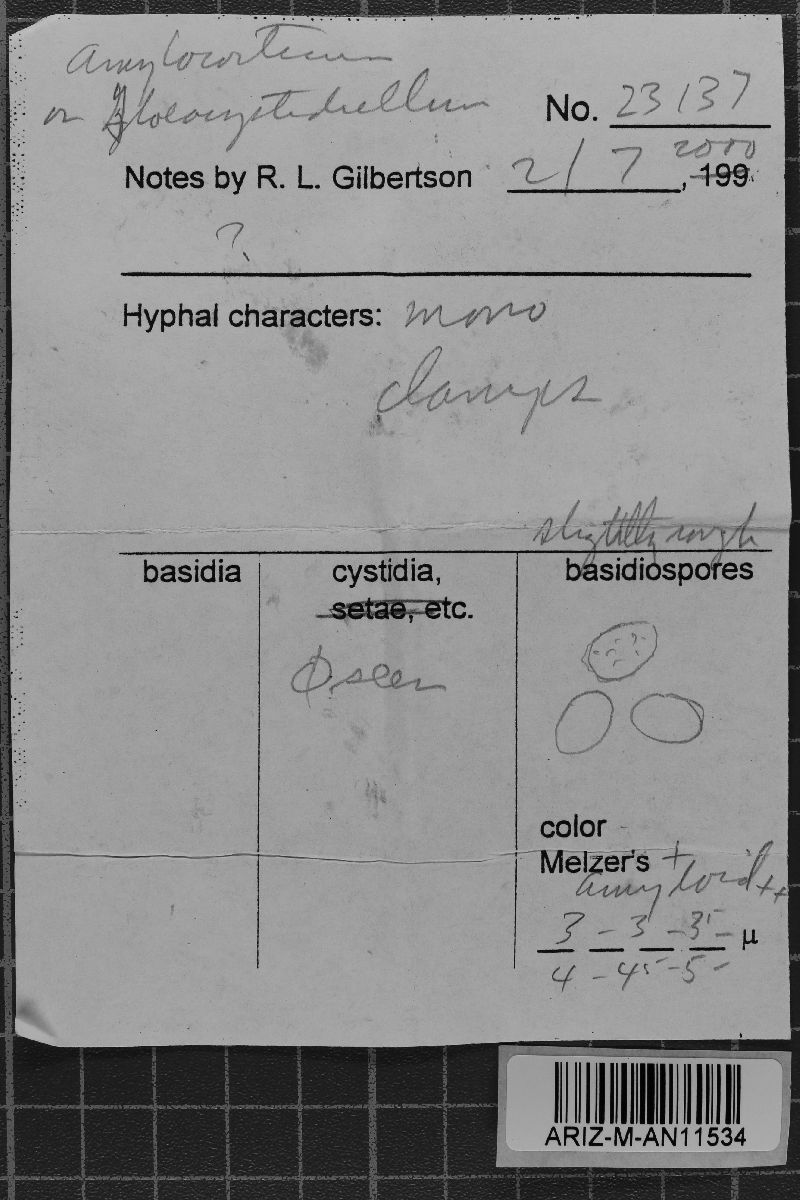 Amylocorticium
or Gloeocystidiellum
No. 23137
Notes by R. L. Gilbertson 2/7, 199 2000
?
Hyphal characters: mono
clamps
slightly rough
basidia
cystidia,
setae, etc.
basidiospores
Ø seen
color -
Melzer's +
amyloid ++
3 - 3 - 35 - μ
4 - 45 - 5 -
ARIZ-M-AN11534